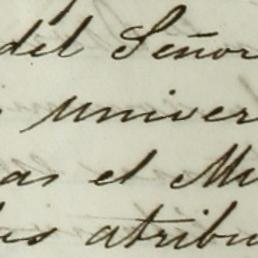 del Señor
univer
as el Mu
les atribu